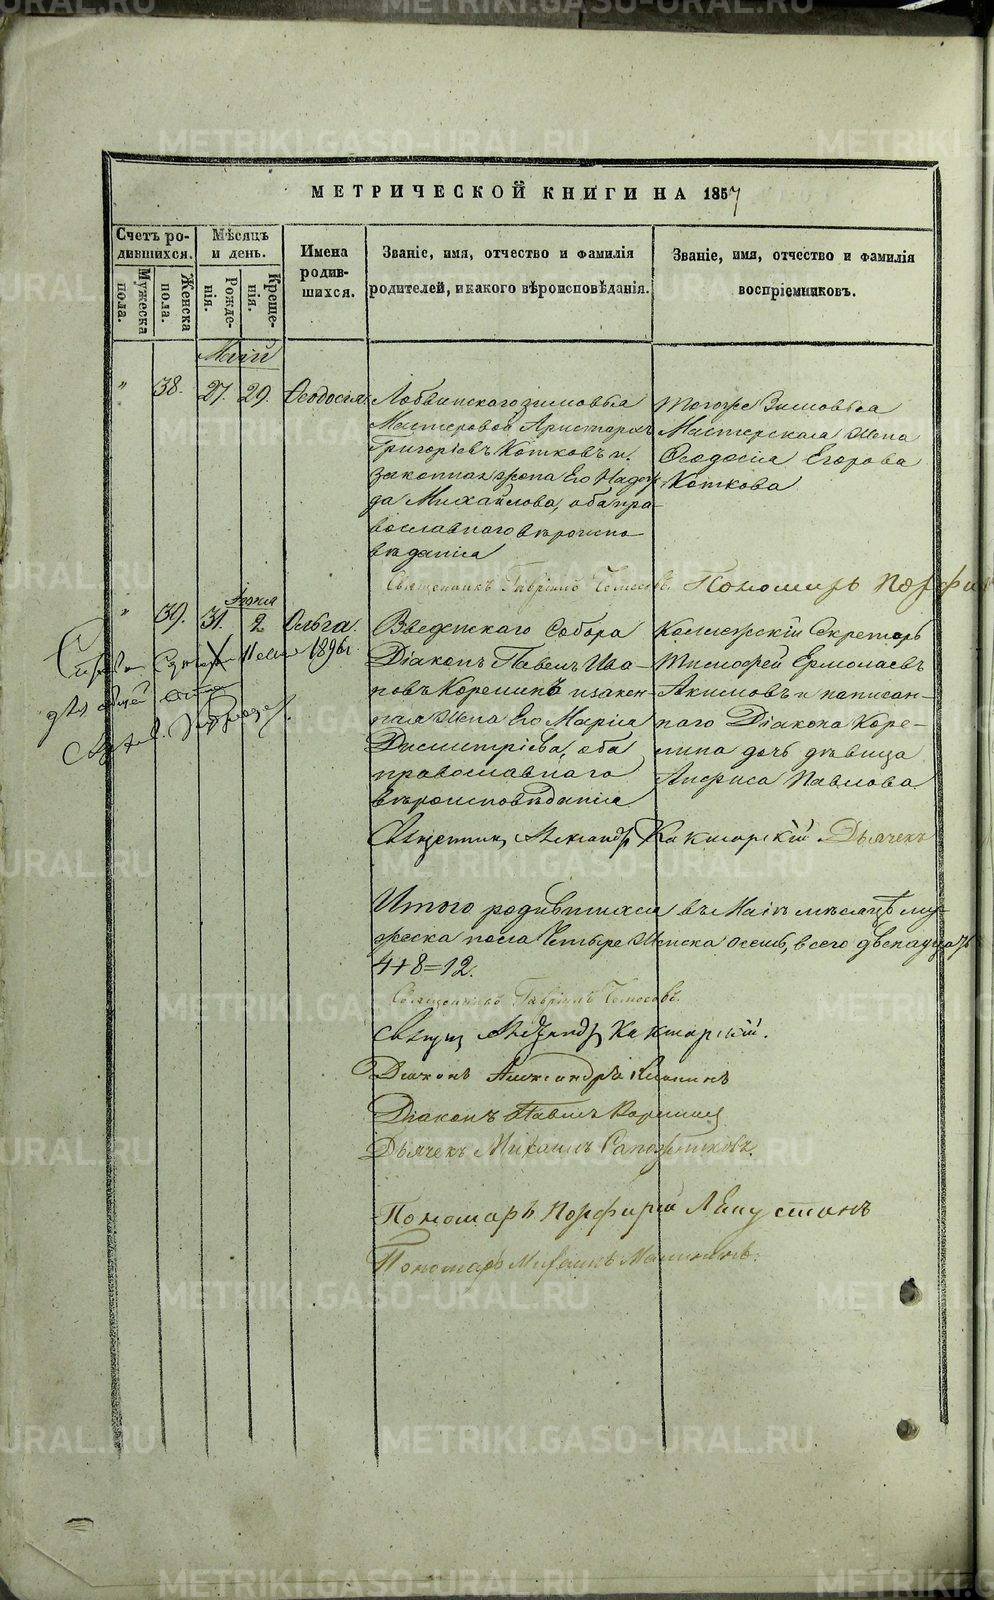 МЕТРИЧЕСКОЙ КНИГИ НА 1857
Счетъ ро-
дившихся.
Мужеска
пола.
Женска
пола.
Мѣсяцъ
и день.
Рожде-
нія.
Креще-
нія.
Имена
родив-
шихся.
Званіе, имя, отчество и фамилія
родителей, и какого вѣроисповѣданія.
Званіе, имя, отчество и фамилія
воспріемниковъ.
Маій
" 38. 27. 29. Ѳеодосія
Лобвинскаго зимовья
Мастеровой Аристархъ
Григорьевъ Котковъ и
законная жена Его Надеж
да Михайлова, оба пра-
вославнаго вѣроиспо
вѣданія
тогоже Зимовья
Мастерская жена
Ѳеодосія Егорова
Коткова
Священникъ Гавріилъ Пономарь Порфи
Іюня
" 39. 31. 2 Ольга.
11 1896 г.
Введенскаго Собора
Діаконъ Павелъ Ива
новъ Корелинъ и закон-
ная жена Его Марія
Дмитріева, оба
православнаго
вѣроисповѣданія
Коллежскій Секретарь
Тимофей Ермолаевъ
Акимовъ и написан-
наго Діакона Коре-
лина дочь дѣвица
Анфиса Павлова
Священникъ Александръ Дьячекъ
Итого родившихся въ Маіѣ мѣсяцѣ му-
жеска пола Четыре женска осемь, всего двенадцать
4+8=12.
Священникъ Гавріилъ
Священ Александръ
Діаконъ Александръ
Діаконъ Павелъ Корелинъ
Дьячекъ Михаилъ Сапожниковъ.
Пономарь Порфирій
Пономарь
METRIKI.GASO-URAL.RU